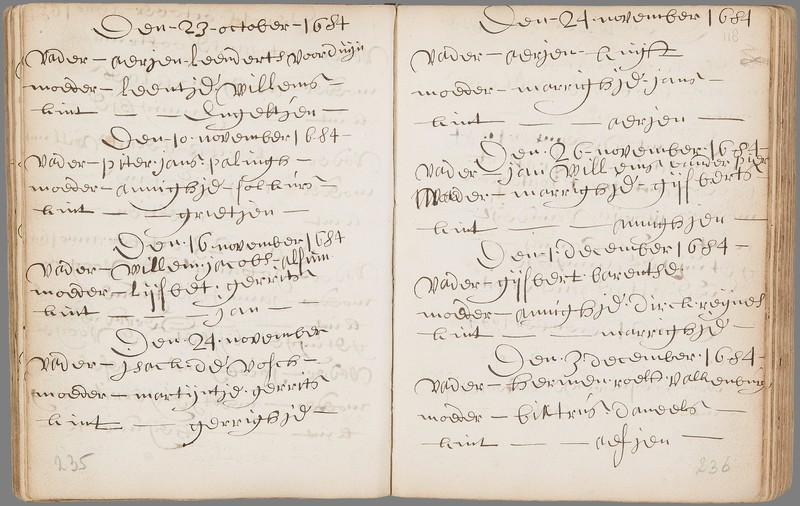 Den 23 october 1684
vader - aerjen leenderts voorduijn
moeder - leentjd willems
kint - - Engeltjen -
Den 10 november 1684 -
vader - piter jans palingh -
moeder - annighjd folkürs -
kint - - grietjen -
Den 16 november 1684
vader - willem jacobs
moeder - lijsbet gerrits
kint - - jan -
Den 24 november
vader - jsack dd vosch -
moeder - martijntjd gerrits
kint - gerrighjd -
235
Den 24 november 1684
118
vader - aerjen - knijft
moeder - marrighjd jans -
kint - - aerjen -
Den 26 november 1684
vader - jan willems vander
moeder - marrighjd - gijsberts
kint - - annighjen -
Den 1 december 1684 -
vader - gijsbert barentse
moeder - annighjd dirck reijnes
kint - - marrighjd -
Den 3 december 1684 -
vader - hermen roelt valkenburg
moeder - bittrüs daneels -
kint - - aefjen -
236